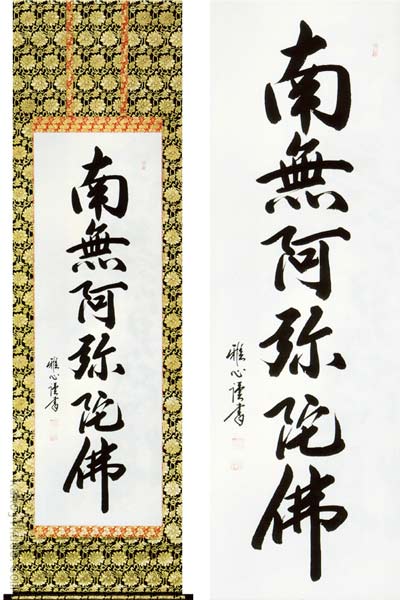 南無阿弥陀佛
雅心謹書
南無阿弥陀佛
雅心謹書